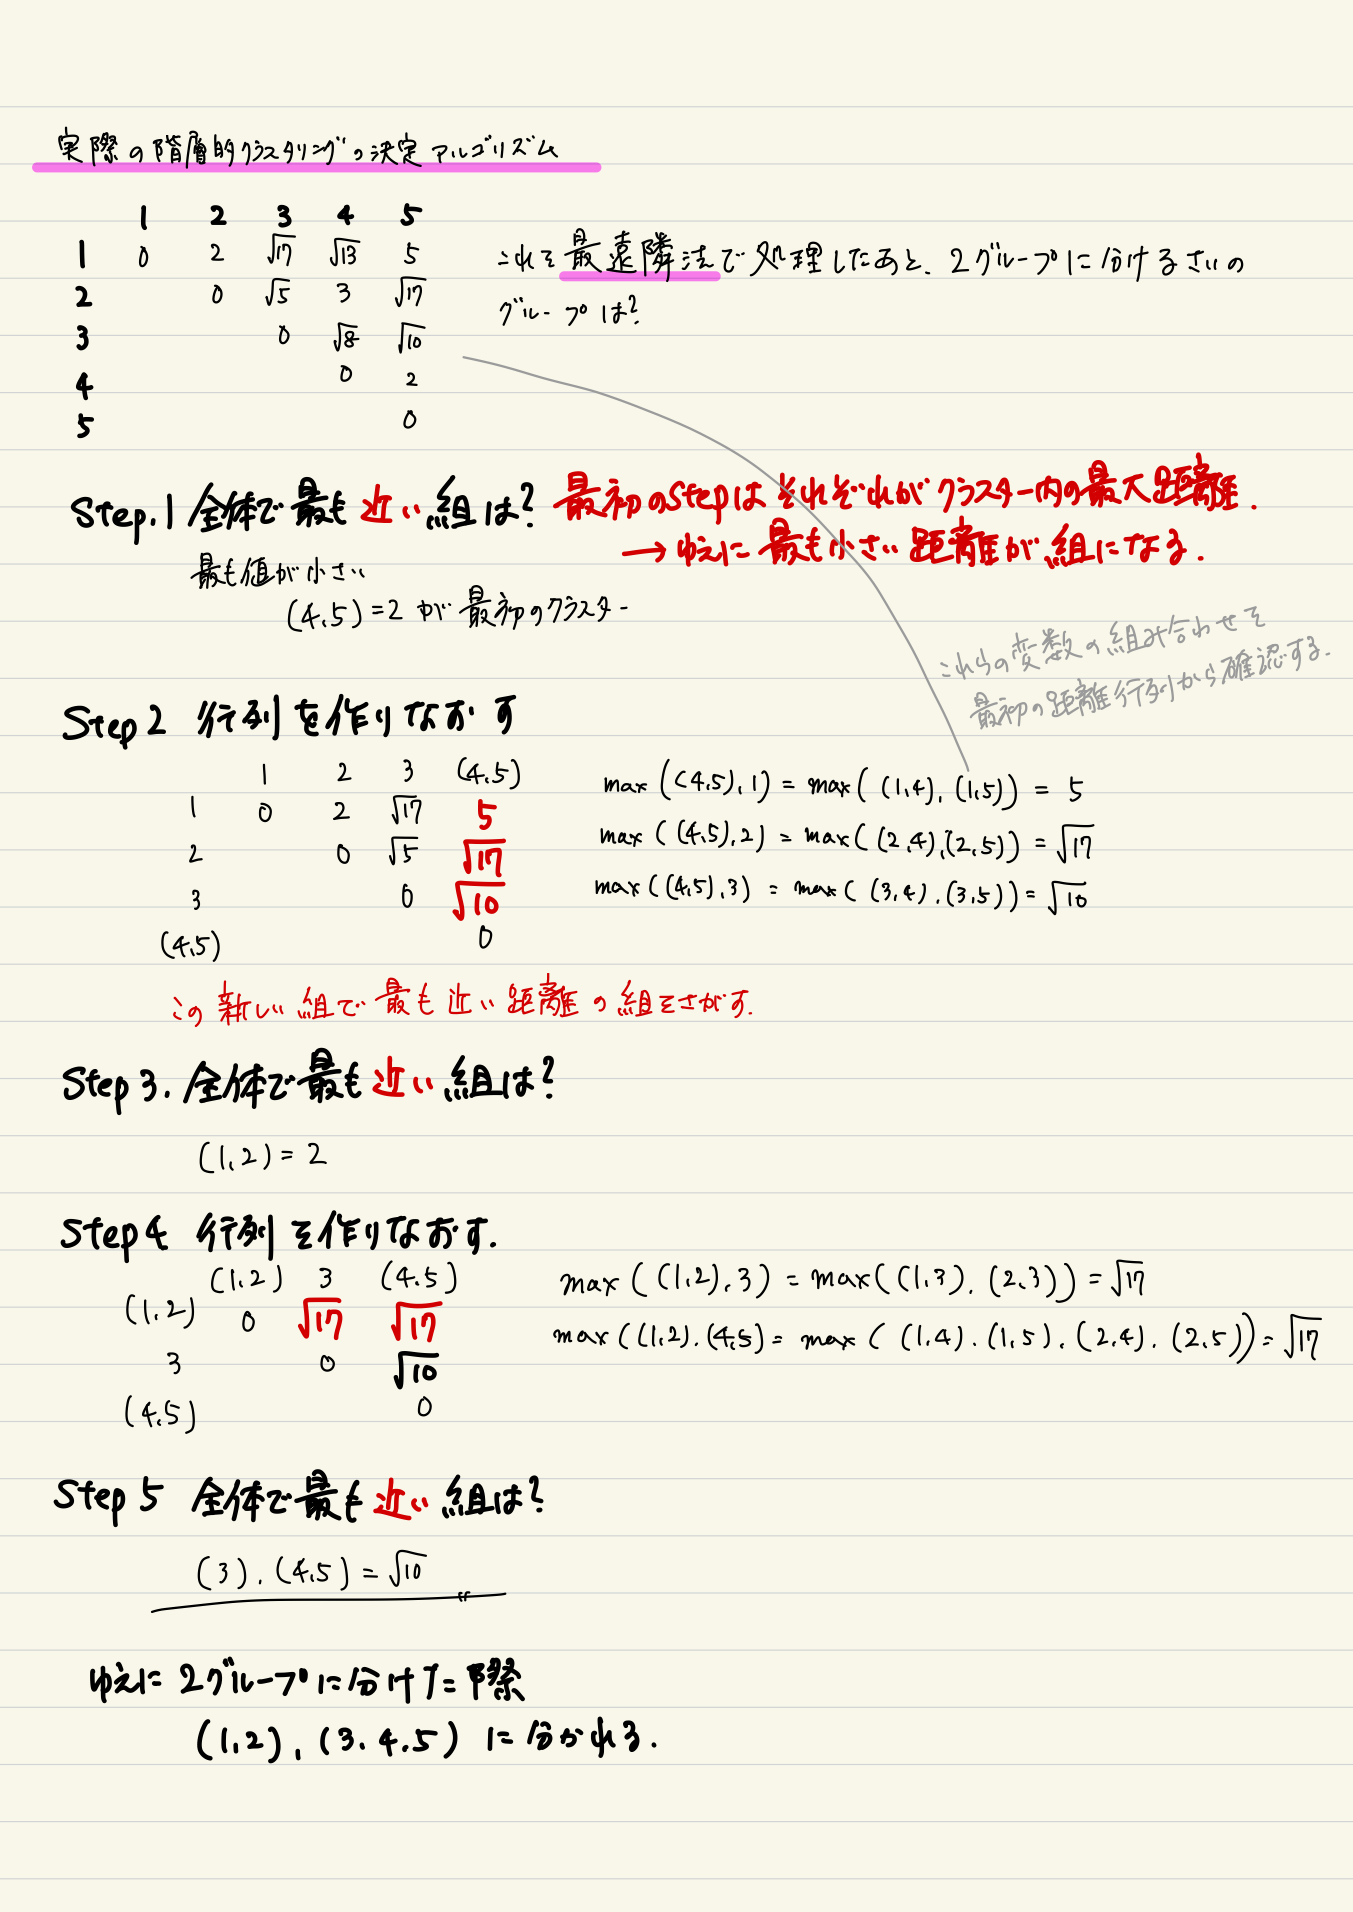 実際の階層的クラスタリングの決定アルゴリズム
1 2 3 4 5
1 0 2 √17 √13 5
2 0 √5 3 √17
3 0 √8 √10
4 0 2
5 0
これを最遠隣法で処理したあと、2グループに分けるさいの
グループは?
Step.1 全体で最も近い組は? 最初のStepはそれぞれがクラスター内の最大距離.
→ ゆえに最も小さい距離が組になる.
最も値が小さい
(4,5)=2 が最初のクラスター
これらの変数の組み合わせを
最初の距離行列から確認する.
Step2 行列を作りなおす
1 2 3 (4,5)
1 0 2 √17 5
2 0 √5 √17
3 0 √10
(4,5) 0
max((4,5),1) = max((1,4),(1,5)) = 5
max((4,5),2) = max((2,4),(2,5)) = √17
max((4,5),3) = max((3,4),(3,5)) = √10
この新しい組で最も近い距離の組をさがす.
Step 3. 全体で最も近い組は?
(1,2) = 2
Step4 行列を作りなおす.
(1,2) 3 (4,5)
(1,2) 0 √17 √17
3 0 √10
(4,5) 0
max((1,2),3) = max((1,3),(2,3)) = √17
max((1,2),(4,5) = max((1,4),(1,5),(2,4),(2,5)) = √17
Step 5 全体で最も近い組は?
(3),(4,5) = √10
ゆえに 2グループに分けた際
(1,2),(3,4,5) に分かれる.